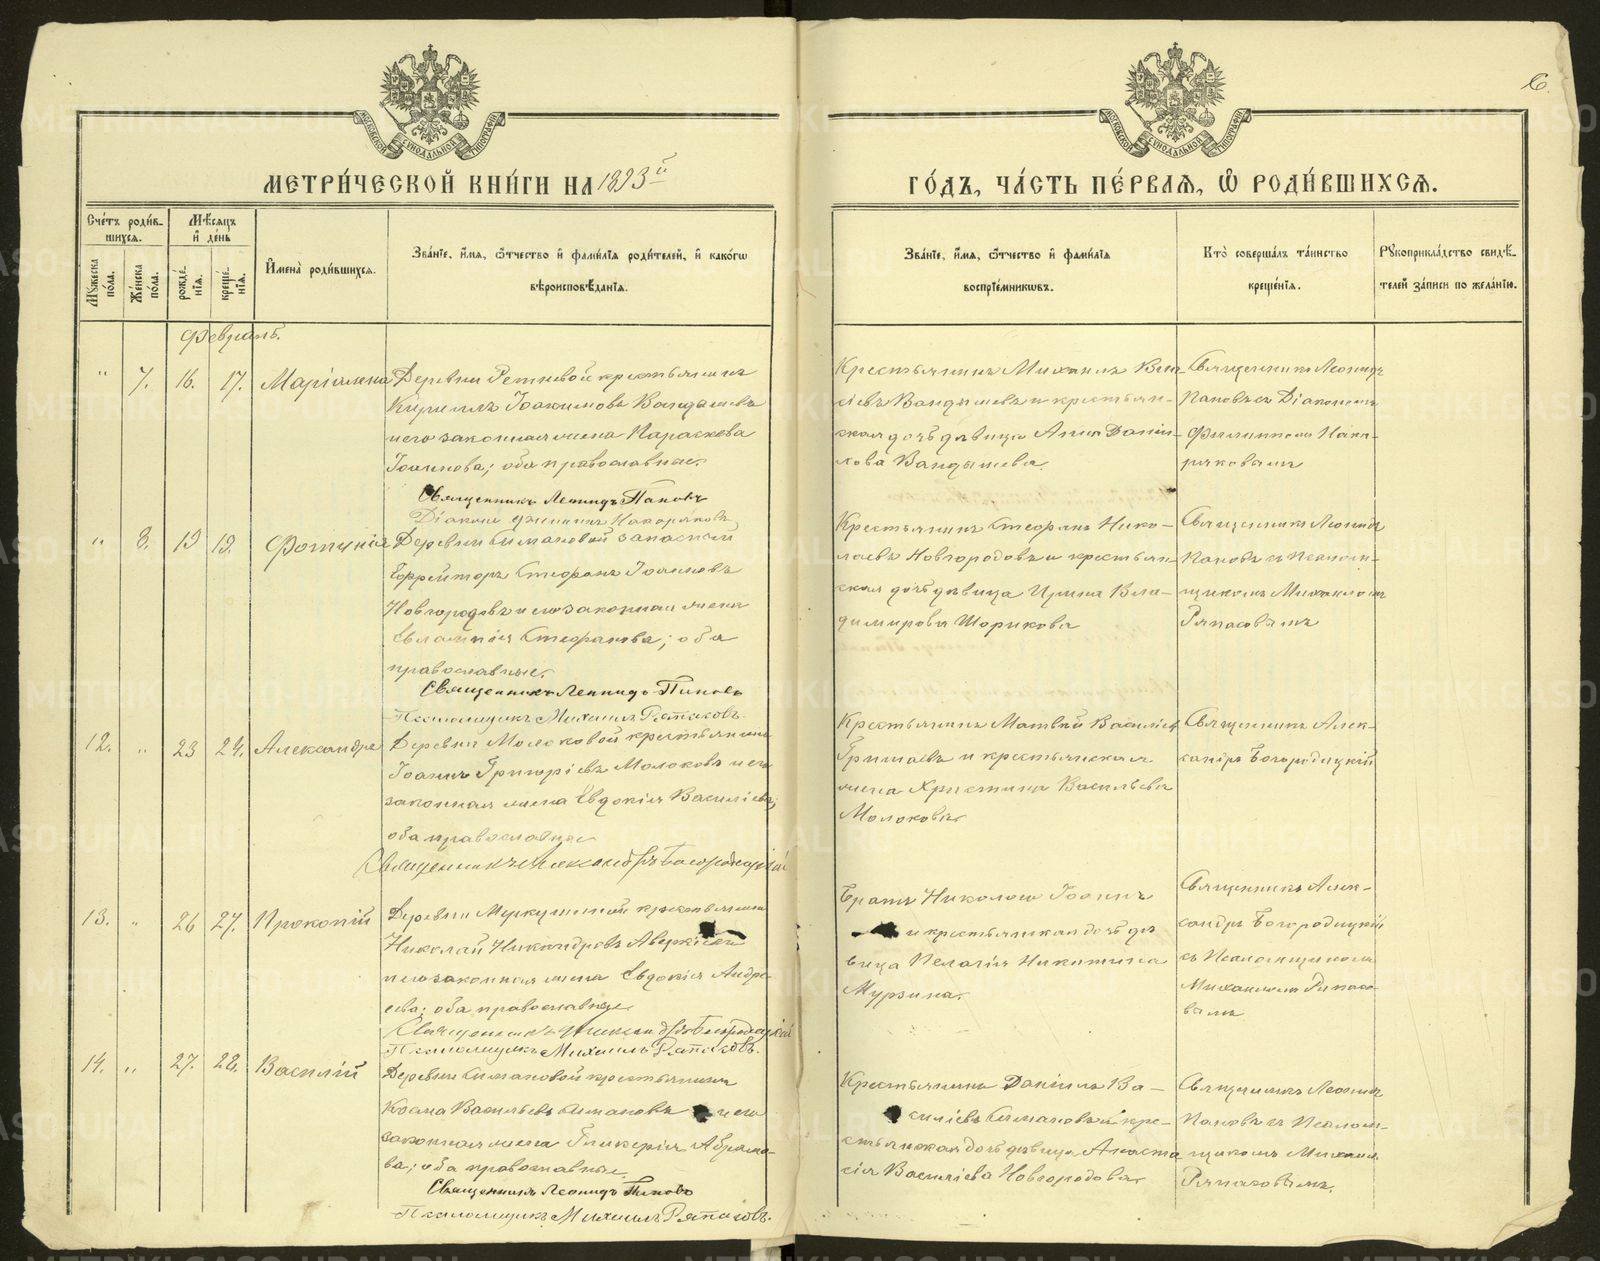 6.
МЕТРИ́ЧЕСКОЙ КНИ́ГИ НА 1893й
ГО́ДЪ, ЧА́СТЬ ПЕ́РВАЯ, Ѡ҆ РОДИ́ВШИХСЯ.
Сче́тъ роди́в-
шихся.
Му́жеска по́ла.
Же́нска по́ла.
Мѣ́сяцъ
и҆ де́нь
рожде́-
нїя.
креще́-
нїя.
И҆мена̀ роди́вшихся.
Зва́нїе, и҆́мя, ѻ҆́тчество и҆ фами́лїя роди́телей, и҆ како́гѡ
вѣроисповѣ́данїя.
Зва́нїе, и҆́мя, ѻ҆́тчество и҆ фами́лїя
воспрїе́мниковъ.
Кто̀ соверша́лъ та́инство
креще́нїя.
Рꙋкоприкла́дство свидѣ́-
телей за́писи по жела́нїю.
Февраль.
" 7. 16. 17.
Деревни Ретневой крестьянинъ
Кириллъ Іоакимовъ Вандышевъ
и его законная жена Параскева
Іоаннова; оба православные.
Священникъ Леонидъ Поповъ
Діаконъ Филиппъ Накоряковъ
Крестьянинъ Михаилъ Васи-
ліевъ Вандышевъ и крестьян-
ская дочь девица Анна Дании-
лова Вандышева.
Священникъ Леонидъ
Поповъ съ Діакономъ
Филиппомъ Нако-
ряковымъ
" 8. 19 19. Фотинія
Деревни Симановой запасный
Ефрейторъ Стефанъ Іоанновъ
Новгородовъ и его законная жена
Евлампія Стефанова; оба
православные.
Священникъ Леонидъ Поповъ
Псаломщикъ Михаилъ Ряпасовъ.
Крестьянинъ Стефанъ Нико-
лаевъ Новгородовъ и крестьян-
ская дочь девица Ирина Вла-
димирова Шорикова
Священникъ Леонидъ
Поповъ съ Псалом-
щикомъ Михаиломъ
Ряпасовымъ
12. " 23 24. Александра
Деревни Молоковой крестьянинъ
Іоаннъ Григоріевъ Молоковъ и его
законная жена Евдокія Василіева;
оба православные
Священникъ Александръ Богородицкій
Крестьянинъ Матвѣй Василіевъ
и крестьянская
жена Христина Васильева
Молокова
Священникъ Алек-
сандръ Богородицкій
13. " 26 27. Прокопій
Деревни Меркушиной крестьянинъ
Николай Никандровъ Аверкіевъ
и его законная жена Евдокія Андре-
ева; оба православные
Священникъ Александръ Богородицкій
Псаломщикъ Михаилъ Ряпасовъ.
Братъ Николая Іоаннъ
и крестьянская дочь де-
вица Пелагія Никитина
Мурзина.
Священникъ Алек-
сандръ Богородицкій
съ Псаломщикомъ
Михаиломъ Ряпасо-
вымъ
14. " 27. 28. Василій
Деревни Симановой крестьянинъ
Косма Васильевъ Симановъ и его
законная жена Гликерія Абрамо-
ва; оба православные
Священникъ Леонидъ Поповъ
Псаломщикъ Михаилъ Ряпасовъ.
Крестьянинъ Даніилъ Ва-
силіевъ Симановъ и кре-
стьянская дочь девица Анаста-
сія Василіева Новгородова
Священникъ Леонидъ
Поповъ съ Псалом-
щикомъ Михаиломъ
Ряпасовымъ.